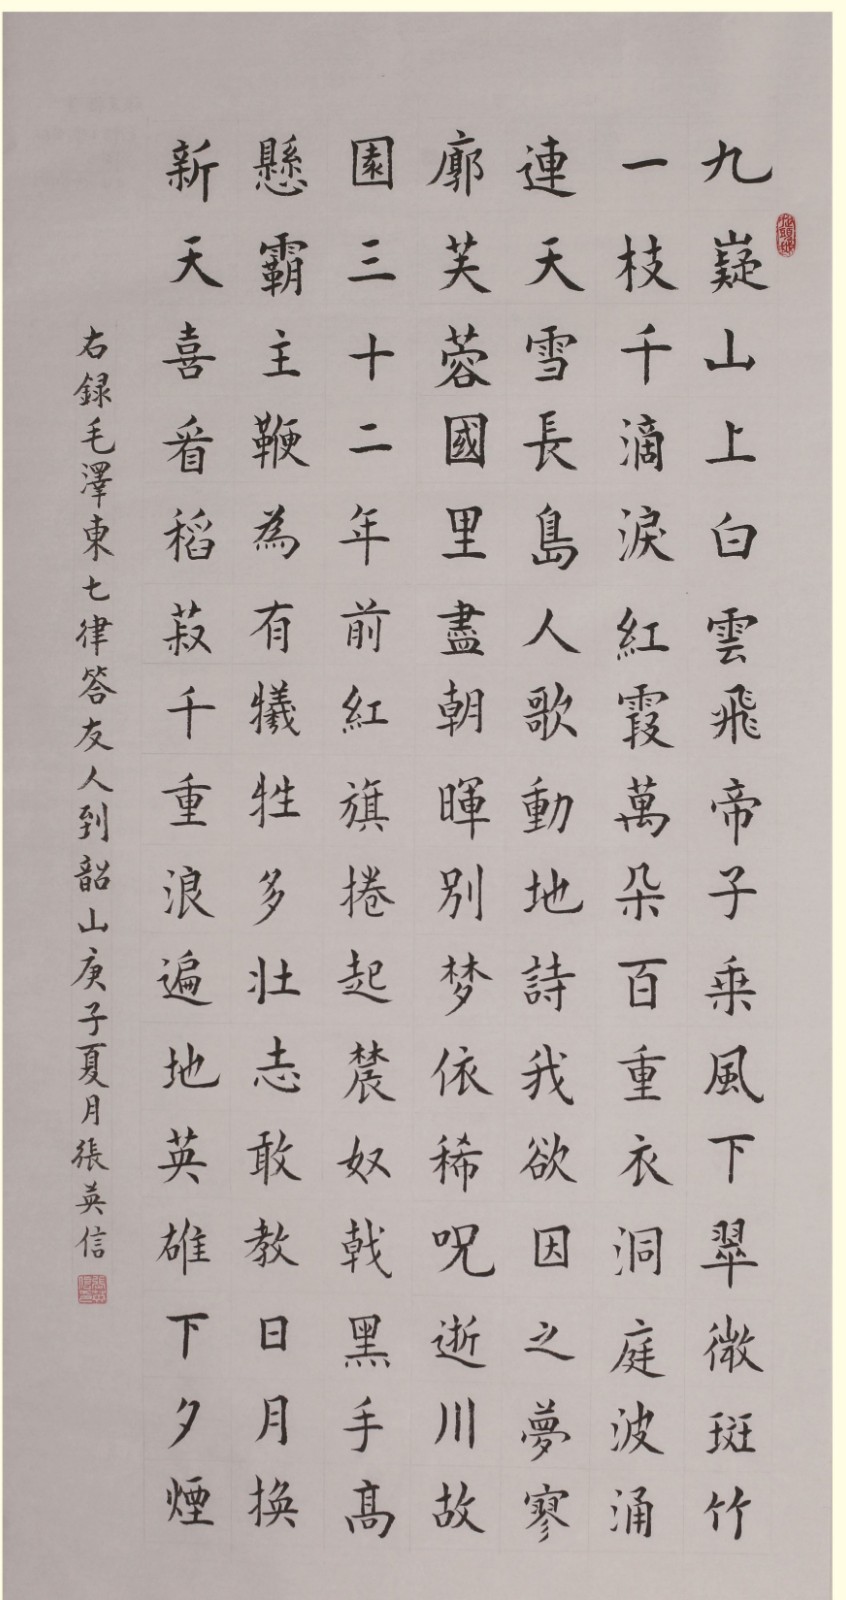 九嶷山上白雲飛帝子乘風下翠微斑竹
一枝千滴淚紅霞萬朵百重衣洞庭波涌
連天雪長島人歌動地詩我欲因之夢寥
廓芙蓉國里盡朝暉別梦依稀呪逝川故
園三十二年前紅旗捲起農奴戟黑手高
懸霸主鞭為有犧牲多壯志敢教日月換
新天喜看稻菽千重浪遍地英雄下夕煙
右録毛澤東七律答友人到韶山庚子夏月張英信